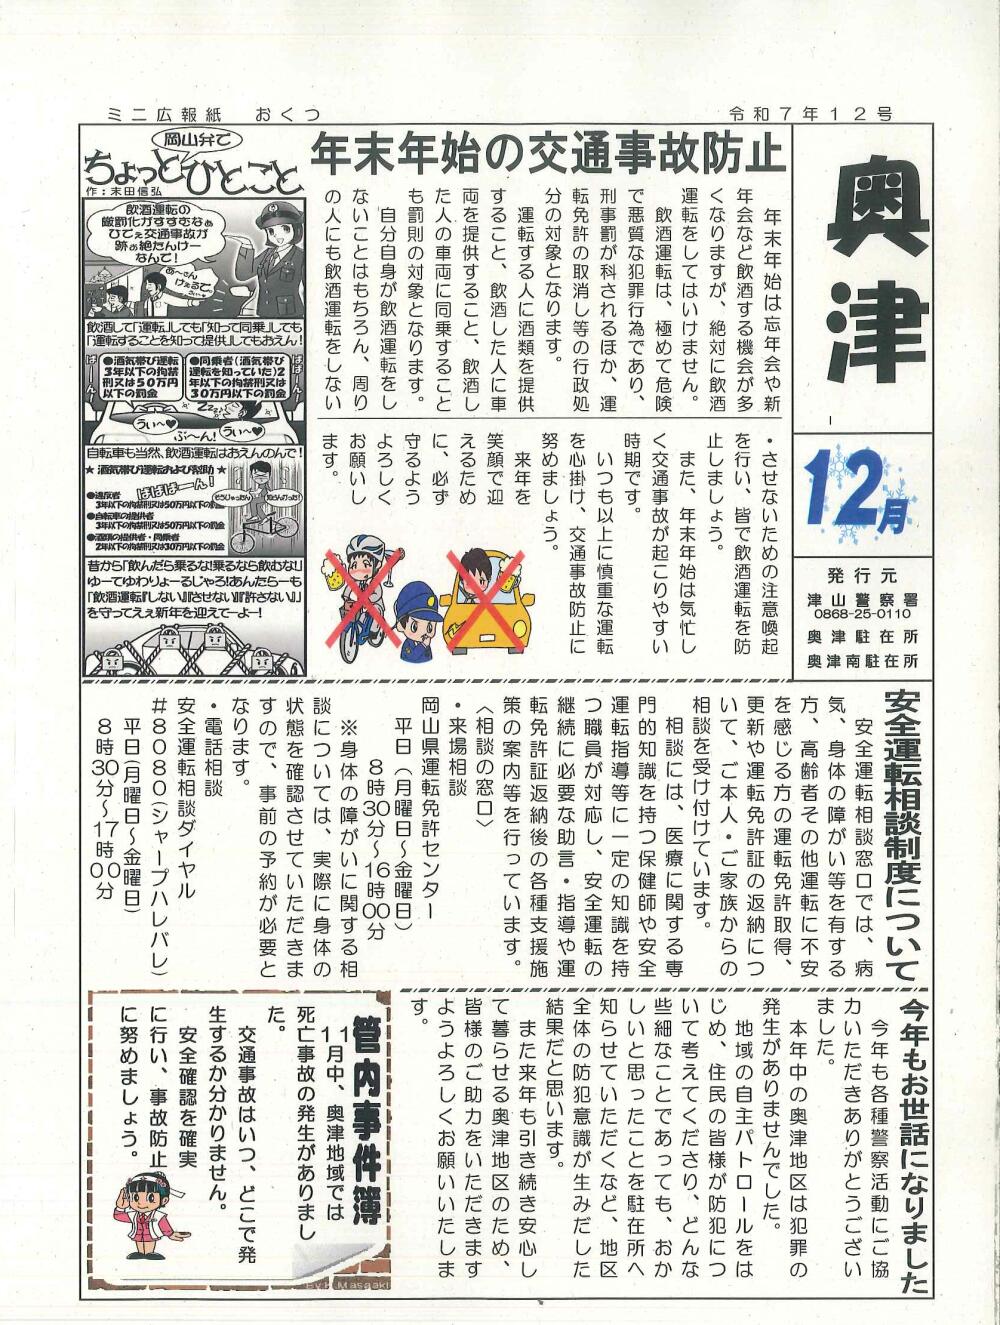 ミニ広報紙　おくつ
令和７年１２号
奥津
12月
発行元
津山警察署
0868-25-0110
奥津駐在所
奥津南駐在所
年末年始の交通事故防止
年末年始は忘年会や新
年会など飲酒する機会が多
くなりますが、絶対に飲酒
運転をしてはいけません。
飲酒運転は、極めて危険
で悪質な犯罪行為であり、
刑事罰が科されるほか、運
転免許の取消し等の行政処
分の対象となります。
運転する人に酒類を提供
すること、飲酒した人に車
両を提供すること、飲酒し
た人の車両に同乗すること
も罰則の対象となります。
自分自身が飲酒運転をし
ないことはもちろん、周り
の人にも飲酒運転をしない
・させないための注意喚起
を行い、皆で飲酒運転を防
止しましょう。
また、年末年始は気忙し
く交通事故が起こりやすい
時期です。
いつも以上に慎重な運転
を心掛け、交通事故防止に
努めましょう。
来年を
笑顔で迎
えるため
に、必ず
守るよう
よろしく
お願いし
ます。
岡山弁で
ちょっとひとこと
作：末田信弘
飲酒運転の
厳罰化がすすむなぁ
ひでぇ交通事故が
跡ぉ絶たんけー
なんで！
あ～さん
けぇるで。
飲酒して「運転」しても「知って同乗」しても
「運転することを知って提供」してもおえん！
●酒気帯び運転
3年以下の拘禁
刑又は50万円
以下の罰金
●同乗者（酒気帯び
運転を知っていた）2
年以下の拘禁刑又は
30万円以下の罰金
うぃ～♥
ぶ～ん！
うぃ～♥
自転車も当然、飲酒運転はおえんのんで！
★ 酒気帯び運転および幇助 ★
ばばばーん！
●違反者
3年以下の拘禁刑又は50万円以下の罰金
●自転車の提供者
3年以下の拘禁刑又は50万円以下の罰金
●酒類の提供者・同乗者
2年以下の拘禁刑又は30万円以下の罰金
昔から「飲んだら乗るな！乗るなら飲むな！」
ゆーてゆわりょーるじゃろ！あんたらーも
「飲酒運転『しない』『させない』『許さない』」
を守ってえぇ新年を迎えてーよー！
安全運転相談制度について
安全運転相談窓口では、病
気、身体の障がい等を有する
方、高齢者その他運転に不安
を感じる方の運転免許取得、
更新や運転免許証の返納につ
いて、ご本人・ご家族からの
相談を受け付けています。
相談には、医療に関する専
門的知識を持つ保健師や安全
運転指導等に一定の知識を持
つ職員が対応し、安全運転の
継続に必要な助言・指導や運
転免許証返納後の各種支援施
策の案内等を行っています。
〈相談の窓口〉
・来場相談
岡山県運転免許センター
平日（月曜日～金曜日）
８時30分～16時00分
※身体の障がいに関する相
談については、実際に身体の
状態を確認させていただきま
すので、事前の予約が必要と
なります。
・電話相談
安全運転相談ダイヤル
＃８０８０（シャープハレバレ）
平日（月曜日～金曜日）
８時30分～17時00分
今年もお世話になりました
今年も各種警察活動にご協
力いただきありがとうござい
ました。
本年中の奥津地区は犯罪の
発生がありませんでした。
地域の自主パトロールをは
じめ、住民の皆様が防犯につ
いて考えてくださり、どんな
些細なことであっても、おか
しいと思ったことを駐在所へ
知らせていただくなど、地区
全体の防犯意識が生みだした
結果だと思います。
また来年も引き続き安心し
て暮らせる奥津地区のため、
皆様のご助力をいただきます
ようよろしくお願いいたしま
す。
管内事件簿
11月中、奥津地域では
死亡事故の発生がありまし
た。
交通事故はいつ、どこで発
生するか分かりません。
安全確認を確実
に行い、事故防止
に努めましょう。
By K.Masaaki